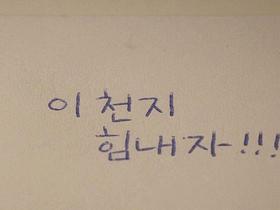 이천지
힘내자!!!